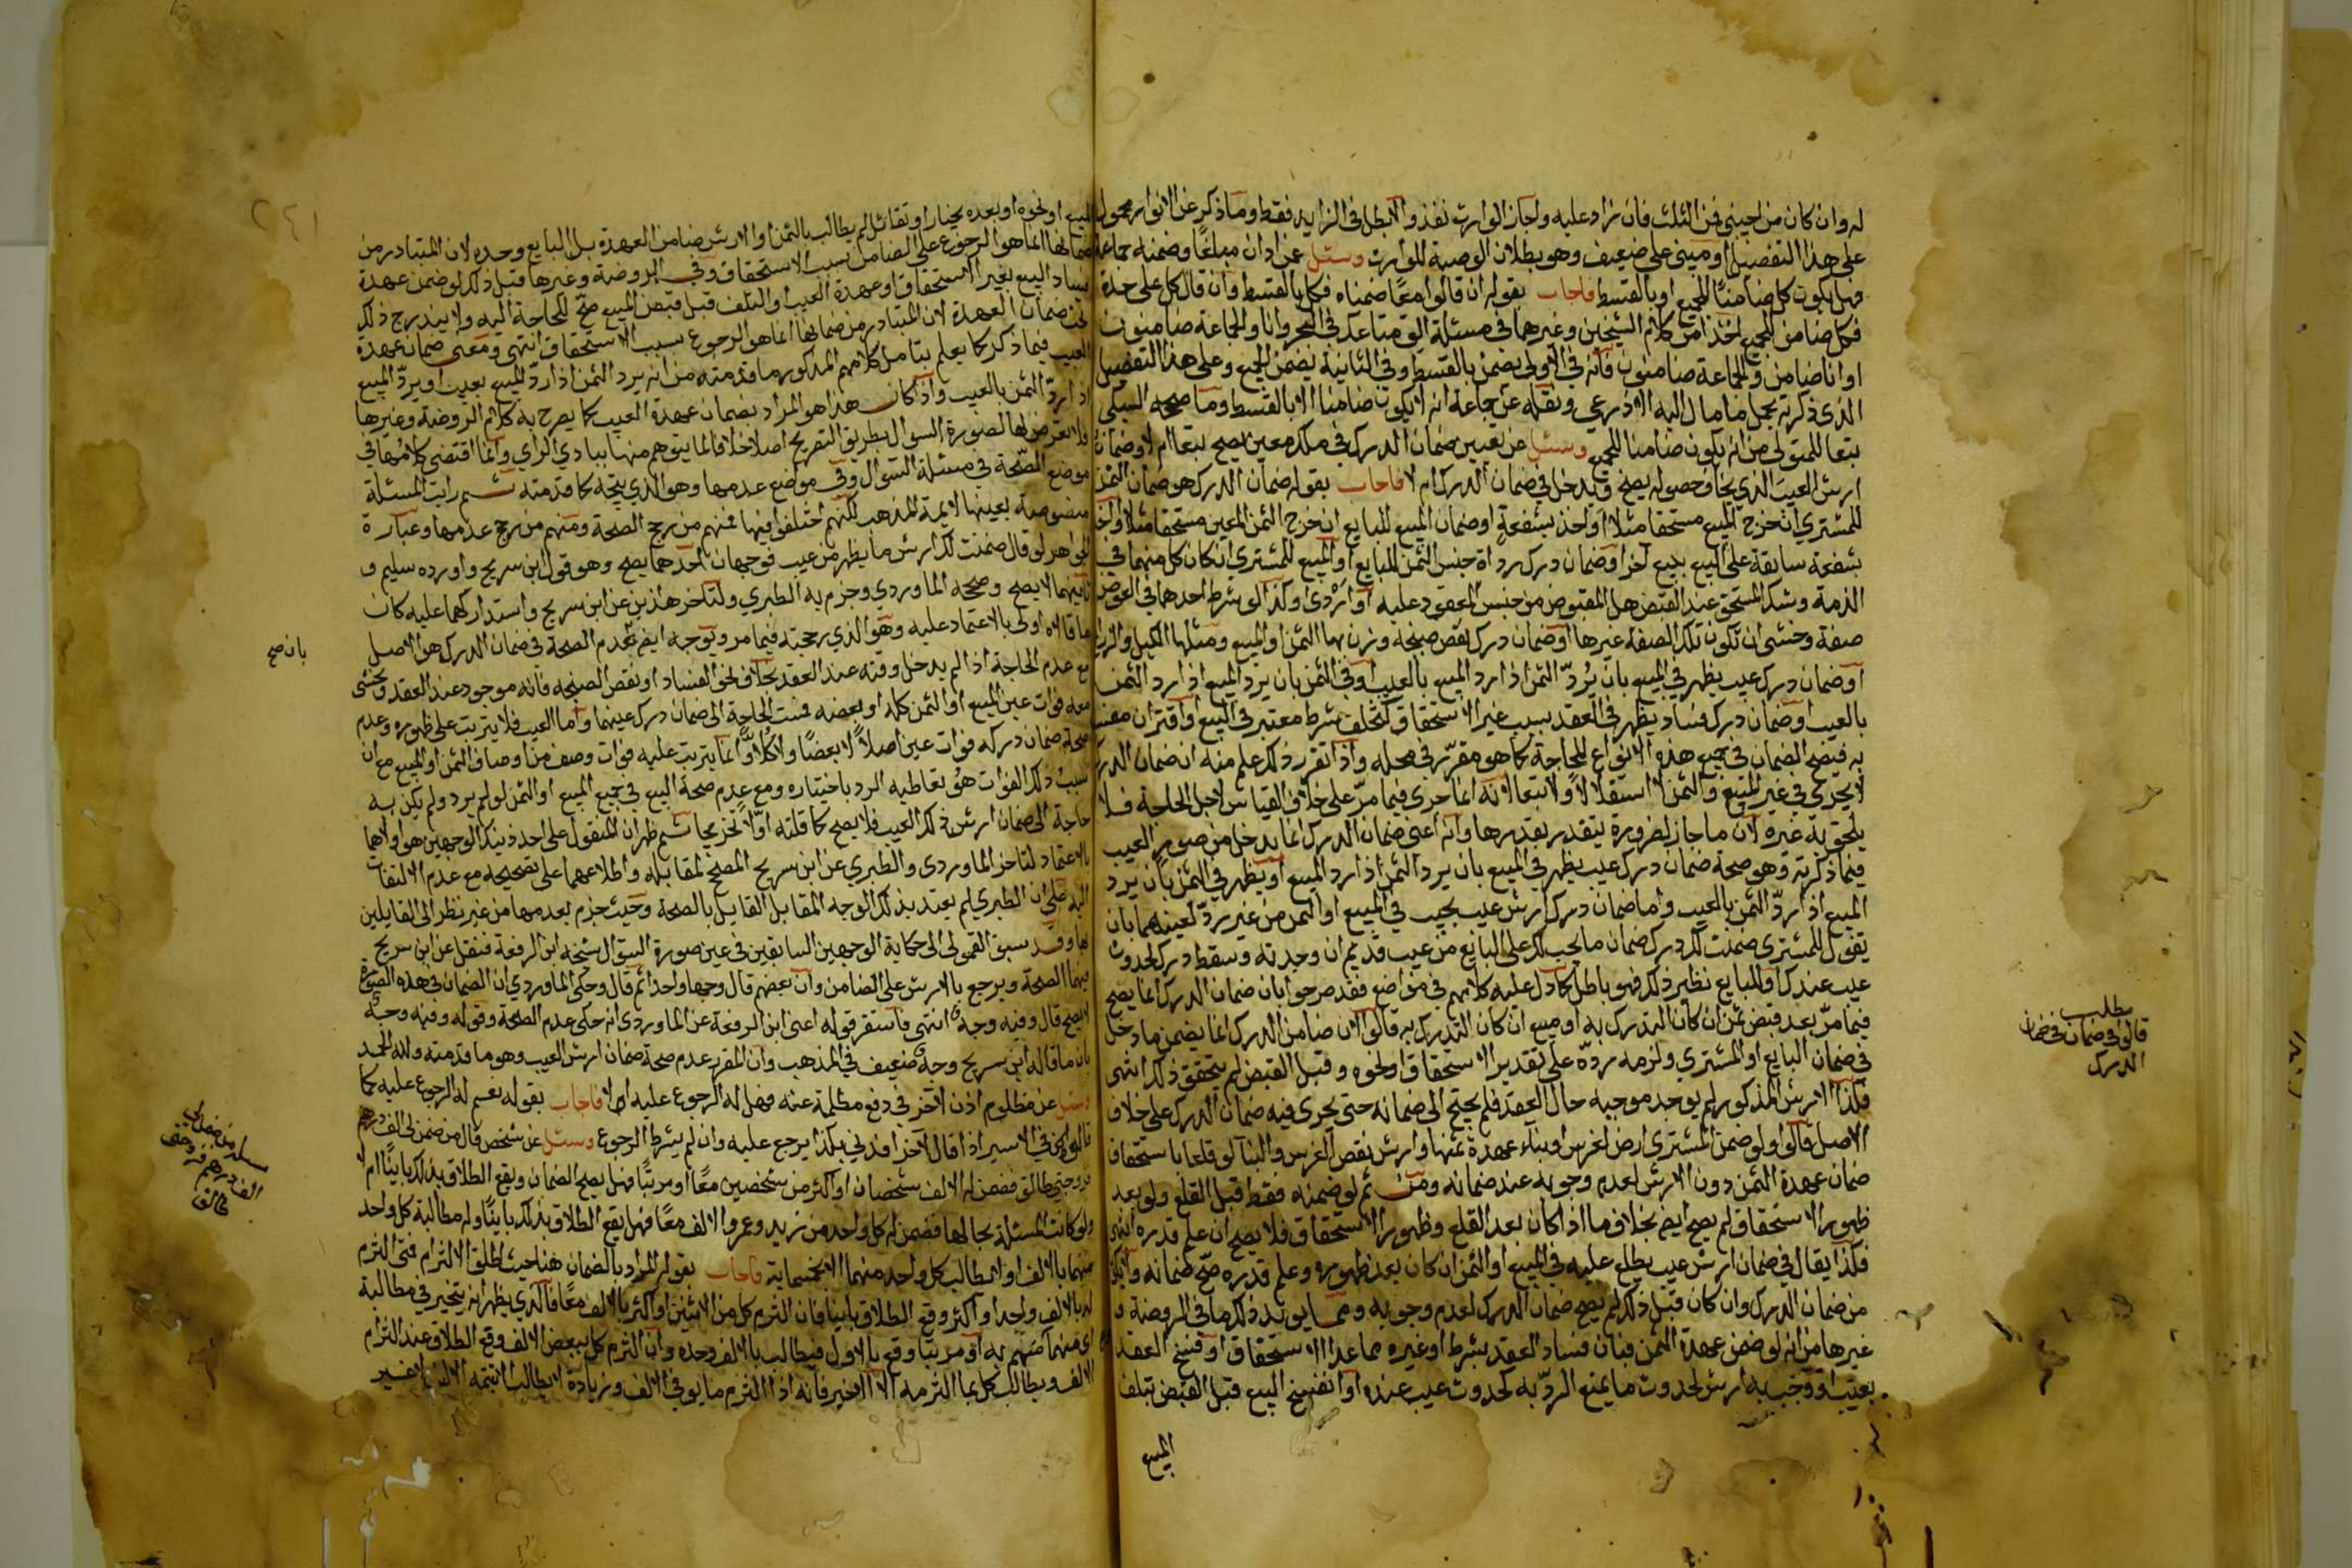 له وان كان من اجنبي فمن الثلث فان زاد عليه واجاز الوارث نفذ والا بطل في الزايد فقط وما ذكر عن الانوار محمول
على هذا التفصيل او مبني على ضعيف وهو بطلان الوصية للوارث وسئل عن دان مبلغا وضمنه جماعة
فهل يكون كل ضامنا للجميع او بالقسط فاجاب بقوله ان قالوا معا ضمناه فكل بالقسط وان قال كل على حدة
فكل ضامن للجميع اخذا من كلام الشيخين وغيرهما في مسئلة الق متاعك في البحر وانا والجماعة ضامنون
او انا ضامن والجماعة ضامنون فانه في الاولى يضمن بالقسط وفي الثانية يضمن الجميع وعلى هذا التفصيل
الذي ذكرته يحمل ما مال اليه الاذرعي ونقله عن جماعة انه لا يكون ضامنا الا بالقسط وما صححه السبكي
تبعا للمتولي من انه يكون ضامنا للجميع وسئل عن تعيين ضمان الدرك في ملك معين يصح تبعا ام لا وضمان
ارش العيب الذي يخاف حصوله يصح ويدخل في ضمان الدرك ام لا فاجاب بقوله ضمان الدرك هو ضمان الثمن
للمشتري ان خرج المبيع مستحقا مثلا او اخذ بشفعة او ضمان المبيع للبايع ان خرج الثمن المعين مستحقا مثلا او اخذ
بشفعة سابقة على البيع ببيع آخر او ضمان درك رداة جنس الثمن للبايع او المبيع للمشتري ان كان كل منهما في
الذمة وشك المستحق عند القبض هل المقبوض من جنس المعقود عليه او اردئ وكذا لو شرط احدهما في العوض
صفة وخشي ان تكون تلك الصفة غيرها او ضمان درك نقص صنجة وزن بها الثمن او المبيع ومثلها الكيل والذراع
او ضمان درك عيب يظهر في المبيع بان يرد الثمن اذا رد المبيع بالعيب او في الثمن بان يرد المبيع اذا رد الثمن
بالعيب او ضمان درك فساد يظهر في العقد بسبب غير الاستحقاق كتخلف شرط معتبر في البيع او اقتران مفسد
به فيصح الضمان في جميع هذه الانواع للحاجة كما هو مقرر في محله واذا تقرر ذلك علم منه ان ضمان الدرك
لا يجري في غير المبيع والثمن لا استقلالا ولا تبعا لانه انما جرى فيما مر على خلاف القياس لاجل الحاجة فلا
يلحق به غيره لان ما جاز لضرورة يتقدر بقدرها وانه اعني ضمان الدرك انما يدخل من صور العيب
فيما ذكرته وهو صحة ضمان درك عيب يظهر في المبيع بان يرد الثمن اذا رد المبيع او يظهر في الثمن بان يرد
المبيع اذا رد الثمن بالعيب واما ضمان درك ارش عيب يجب في المبيع او الثمن من غير رد لعينهما بان
يقول للمشتري ضمنت لك درك ضمان ما يجب لك على البايع من عيب قديم ان وجدته وسقط درك لحدوث
عيب عندك او للبايع نظير ذلك فهو باطل كما دل عليه كلامهم في مواضع فقد صرحوا بان ضمان الدرك انما يصح
فيما مر بعد قبض ثمن ان كان التدرك به او مبيع ان كان التدرك به قالوا لان ضامن الدرك انما يضمن ما دخل
في ضمان البايع او المشتري ولزمه رده على تقدير الاستحقاق او نحوه وقبل القبض لم يتحقق ذلك انتهى
فكذا الارش المذكور لم يوجد موجبه حال العقد فلم يحتج الى ضمانه حتى يجري فيه ضمان الدرك على خلاف
الاصل قالوا ولو ضمن المشتري ارض لغرس او بناء عهدة ثمنها وارش نقص الغرس والبنا لو قلعا باستحقاق
ضمان عهدة الثمن دون الارش لعدم وجوبه عند ضمانه ومن ثم لو ضمنه فقط قبل القلع ولو بعد
ظهور الاستحقاق لم يصح ايضا بخلاف ما اذا كان بعد القلع وظهور الاستحقاق فلا يصح ان علم قدره انتهى
فكذا يقال في ضمان ارش عيب يطلع عليه في المبيع او الثمن ان كان بعد ظهوره وعلم قدره صح ضمانه
من ضمان الدرك وان كان قبل ذلك لم يصح ضمان الدرك لعدم وجوبه ومما يويد ذلك ما في الروضة و
غيرها من انه لو ضمن عهدة الثمن فبان فساد العقد بشرط او غيره مما عدا الاستحقاق او فسخ العقد
بعيب او وجب به ارش لحدوث ما يمنع الرد به كحدوث عيب عنده او انفسخ البيع قبل القبض بتلف
المبيع
مطلب
قالوا في ضمان في ضمان
الدرك
المبيع او نحوه او بعده بخيار او تقائل لم يطالب بالثمن او الارش ضامن العهدة بل البايع وحده لان المتبادر من
ضمانها انما هو الرجوع على الضامن بسبب الاستحقاق وفي الروضة وغيرها قبل ذلك لو ضمن عهدة
فساد البيع بغير الاستحقاق او عهدة العيب او التلف قبل قبض المبيع صح للحاجة اليه ولا يندرج ذلك
تحت ضمان العهدة لان المتبادر من ضمانها انما هو الرجوع بسبب الاستحقاق انتهى ومعنى ضمان عهدة
العيب فيما ذكر كما يعلم بتامل كلامهم المذكور ما قدمته من انه يرد الثمن اذا رد المبيع بعيب او يرد المبيع
اذا رد الثمن بالعيب واذا كان هذا هو المراد بضمان عهدة العيب كما يصرح به كلام الروضة وغيرها
فلا تعرض لها لصورة السوال بطريق التصريح اصلا خلافا لما يتوهم منها ببادي الراي وانما اقتضى كلامهما في
موضع الصحة في مسئلة السوال وفي مواضع عدمها وهو الذي يتجه كما قدمته ثم رايت المسئلة
منصوصة بعينها لايمة المذهب لكنهم اختلفوا فيها فمنهم من رجح الصحة ومنهم من رجح عدمها وعبارة
الجواهر لو قال ضمنت لك ارش ما يظهر من عيب فوجهان احدهما يصح وهو قول ابن سريج واورده سليم و
ثانيهما لا يصح وصححه الماوردي وجزم به الطبري ولتاخر هذين عن ابن سريج واستدراكهما عليه كان
ما قالاه اولى بالاعتماد عليه وهو الذي رجحته فيما مر ويوجه ايضا بعدم الصحة في ضمان الدرك هو الاصل
مع عدم الحاجة اذا لم يدخل وقته عند العقد بخلاف نحو الفساد او نقص الصنجة فانه موجود عند العقد ويخشى
معه فوات عين المبيع او الثمن كله او بعضه فمست الحاجة الى ضمان درك عينهما واما العيب فلا يترتب على ظهوره وعدم
صحة ضمان دركه فوات عين اصلا لا بعضا ولا كلا وانما يترتب عليه فوات وصف من اوصاف الثمن او المبيع مع ان
سبب ذلك الفوات هو تعاطيه الرد باختياره ومع عدم صحة البيع في جميع المبيع او الثمن لو لم يرد ولم يكن به
حاجة الى ضمان ارش ذلك العيب فلا يصح كما قلته اولا تخريجا ثم ظهر ان المنقول على احد ذينك الوجهين هو اولاها
بالاعتماد لتاخر الماوردي والطبري عن ابن سريج المصحح لمقابله واطلاعهما على تصحيحه مع عدم الالتفات
اليه على ان الطبري لم يعتد بذلك الوجه المقابل القايل بالصحة وحيث جزم بعدمها من غير نظر الى القايلين
بها وقد سبق القمولي الى حكاية الوجهين السابقين في عين صورة السوال شيخه ابن الرفعة فنقل عن ابن سريج
فيهما الصحة ويرجع بالارش على الضامن وان بعضهم قال وجها واحدا ثم قال وحكى الماوردي ان الضمان في هذه الصورة
لا يصح قال وفيه وجه انتهى فاستقر قوله اعني ابن الرفعة عن الماوردي انه حكى عدم الصحة وقوله وفيه وجه
بان ما قاله ابن سريج وجه ضعيف في المذهب وان المقرر عدم صحة ضمان ارش العيب وهو ما قدمته ولله الحمد
وسئل عن مظلوم اذن لآخر في دفع مظلمة عنه فهل له الرجوع عليه ام لا فاجاب بقوله نعم له الرجوع عليه كما
قالوا في الاسير اذا قال لآخر افدني بكذا يرجع عليه وان لم يشرط الرجوع وسئل عن شخص قال من ضمن لي الف درهم
فزوجتي طالق فضمن له الالف شخصان او اكثر من شخصين معا او مرتبا فهل يصح الضمان ويقع الطلاق بذلك باينا ام لا
ولو كانت المسئلة بحالها فضمن له كل واحد من زيد وعمرو الالف معا فهل يقع الطلاق بذلك باينا وله مطالبة كل واحد
منهما بالالف او لا يطالب كل واحد منهما الا بخمسماية فاجاب بقوله المراد بالضمان هنا حيث اطلق الالتزام فمتى التزم
له بالالف واحد او اكثر وقع الطلاق باينا فان التزم كل من الاثنين او اكثر بالالف معا فالذي يظهر انه يتخير في مطالبة
اي منهما منهم به او مرتبا وقع بالاول فيطالب بالالف وحده وان التزم كل ببعض الالف وقع الطلاق عند التزام
الالف ويطالب كل بما التزمه الا الاخير فانه اذا التزم ما يوفي الالف وزيادة لا يطالب الا بتتمة الالف لا غير
بان صح